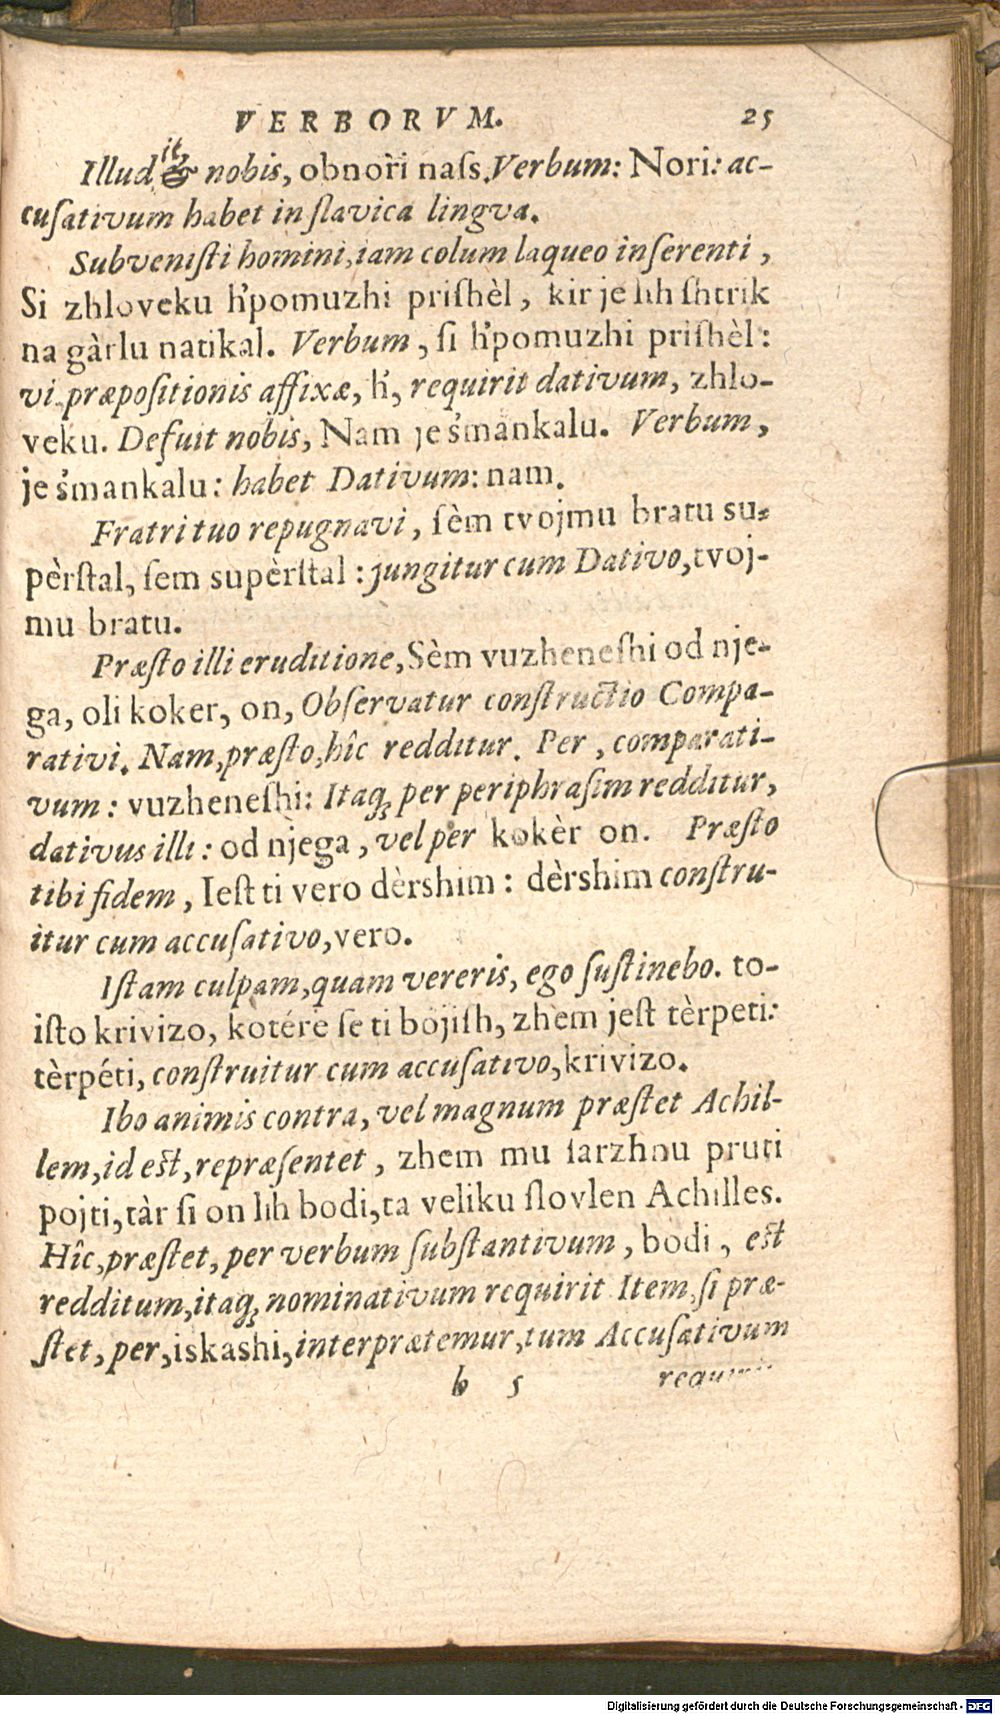 VERBORVM. 25
it
Illud & nobis, obnor̀i naſs. Verbum: Nori: ac-
cuſativum habet in ſlavica lingva.
Subveniſti homini, iam colum laqueo inſerenti,
Si zhloveku h'pomuzhi priſhèl, kir je ſih ſhtrik
na gàrlu natikal. Verbum, ſi h'pomuzhi priſhèl:
vi præpoſitionis affixæ, h', requirit dativum, zhlo-
veku. Defuit nobis, Nam je s'mankalu. Verbum,
je s'mankalu: habet Dativum: nam.
Fratri tuo repugnavi, ſèm tvojmu bratu su-
pèrſtal, ſem supèrſtal: jungitur cum Dativo, tvoj-
mu bratu.
Præſto illi eruditione, Sèm vuzheneſhi od nje-
ga, oli koker, on, Obſervatur conſtructio Compa-
rativi. Nam, præſto, hîc redditur. Per, comparati-
vum: vuzheneſhi: Itaq; per periphraſim redditur,
dativus illi: od njega, vel per kokèr on. Præſto
tibi fidem, Ieſt ti vero dèrshim: dèrshim conſtru-
itur cum accuſativo, vero.
Iſtam culpam, quam vereris, ego ſuſtinebo. to-
iſto krivizo, kotére ſe ti bojiſh, zhem jeſt tèrpeti:
tèrpéti, conſtruitur cum accuſativo, krivizo.
Ibo animis contra, vel magnum præſtet Achil-
lem, id eſt, repræſentet, zhem mu ſarzhnu pruti
pojti, tàr ſi on lih bodi, ta veliku ſlovlen Achilles.
Hîc, præſtet, per verbum ſubſtantivum, bodi, eſt
redditum, itaq; nominativum requirit Item, ſi præ-
ſtet, per, iskashi, interprætemur, tum Accuſativum
b 5 requirit
Digitalisierung gefördert durch die Deutsche Forschungsgemeinschaft - DFG